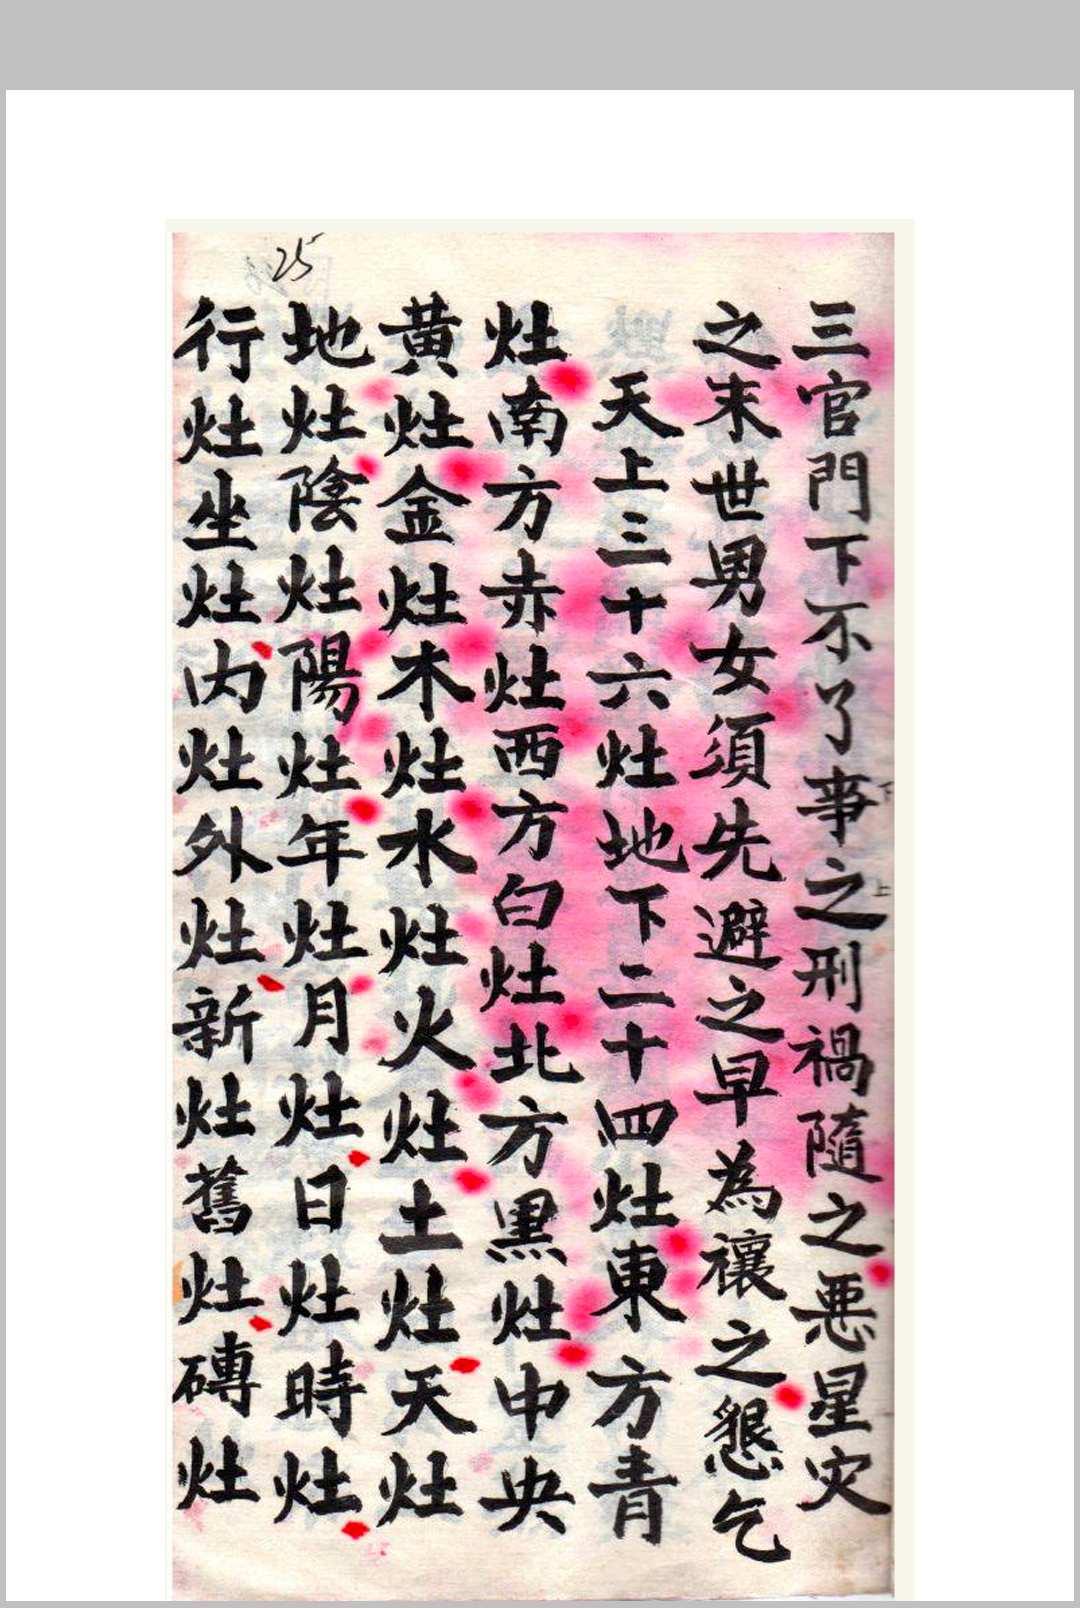 25
三官門下不了事之刑禍隨之惡星灾
之末世男女須先避之早為禳之懇乞
天上三十六灶地下二十四灶東方青
灶南方赤灶西方白灶北方黑灶中央
黃灶金灶木灶水灶火灶土灶天灶
地灶陰灶陽灶年灶月灶日灶時灶
行灶坐灶内灶外灶新灶舊灶磚灶